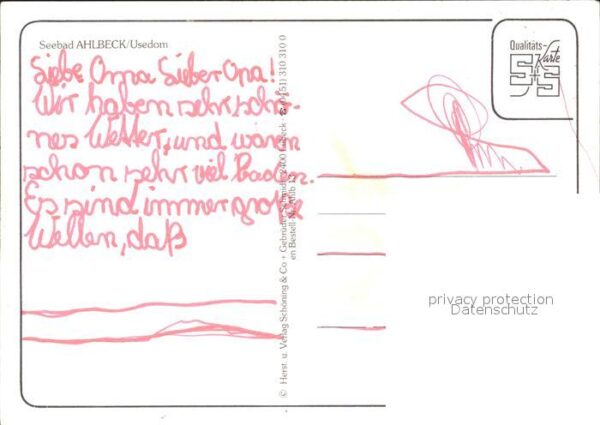 Seebad AHLBECK/Usedom
Liebe Oma Lieber Opa!
Wir haben sehr schö-
nes Wetter, und waren
schon sehr viel Baden.
Es sind immer große
Wellen, daß
© Herst. u. Verlag Schöning & Co + Gebrüder Schmidt, 2400 Lübeck
51) 310 310 0
en Bestell-Nr. Ahlb
Qualitäts-
Karte
S+S
privacy protection
Datenschutz